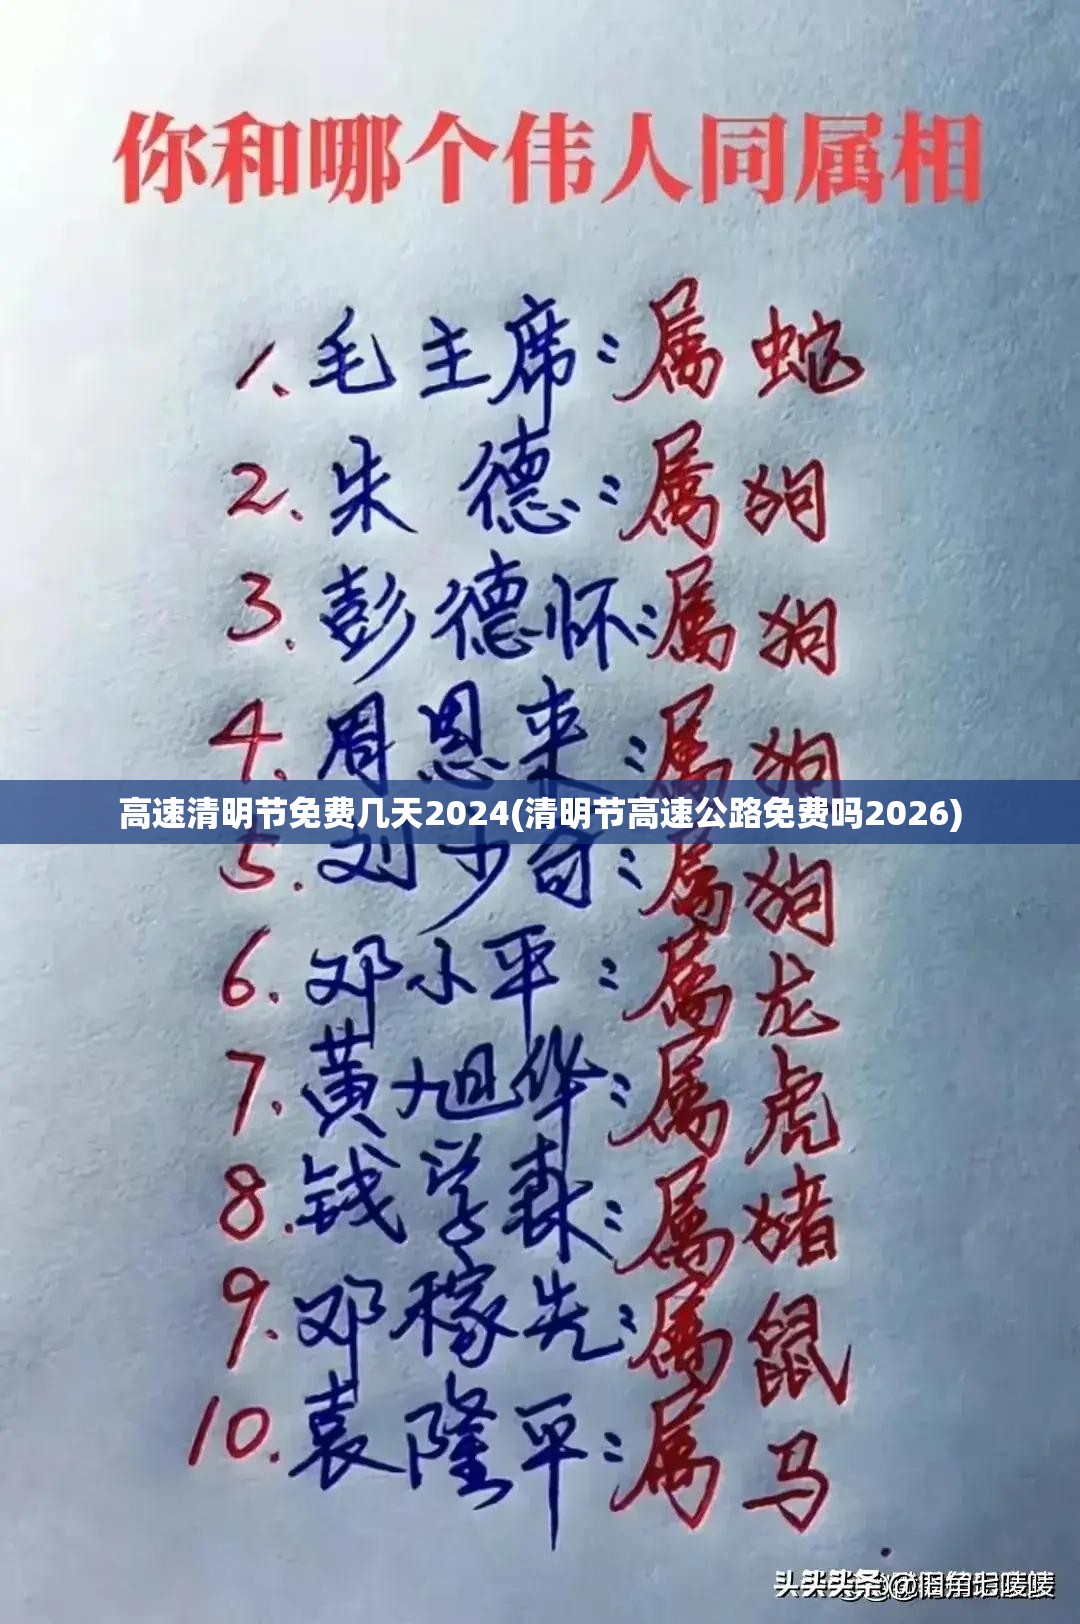 你和哪个伟人同属相
1、毛主席：属蛇
2、朱德：属狗
3、彭德怀：属狗
4、周恩来：属狗
高速清明节免费几天2024(清明节高速公路免费吗2026)
5、刘少奇：属狗
6、邓小平：属龙
7、黄旭华：属虎
8、钱学森：属猪
9、邓稼先：属鼠
10、袁隆平：属马
头条 @